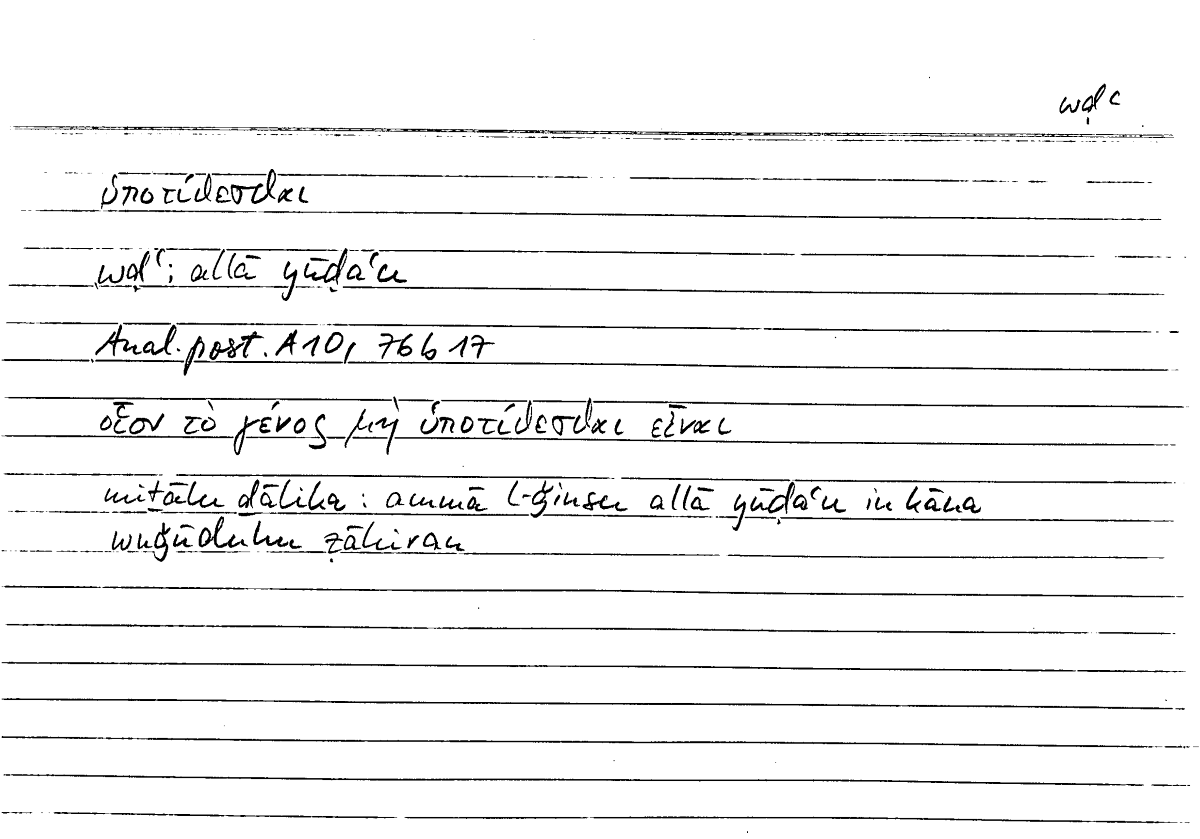 wḍʿ
ὑποτίθεσθαι
wḍʿ; allā yūḍaʿu
Anal. post. A 10, 76 b 17
οἷον τὸ γένος μὴ ὑποτίθεσθαι εἶναι
miṯālu ḏālika : ammā l-ǧinsu allā yūḍaʿu in kāna
wuǧūduhu ẓāhiran